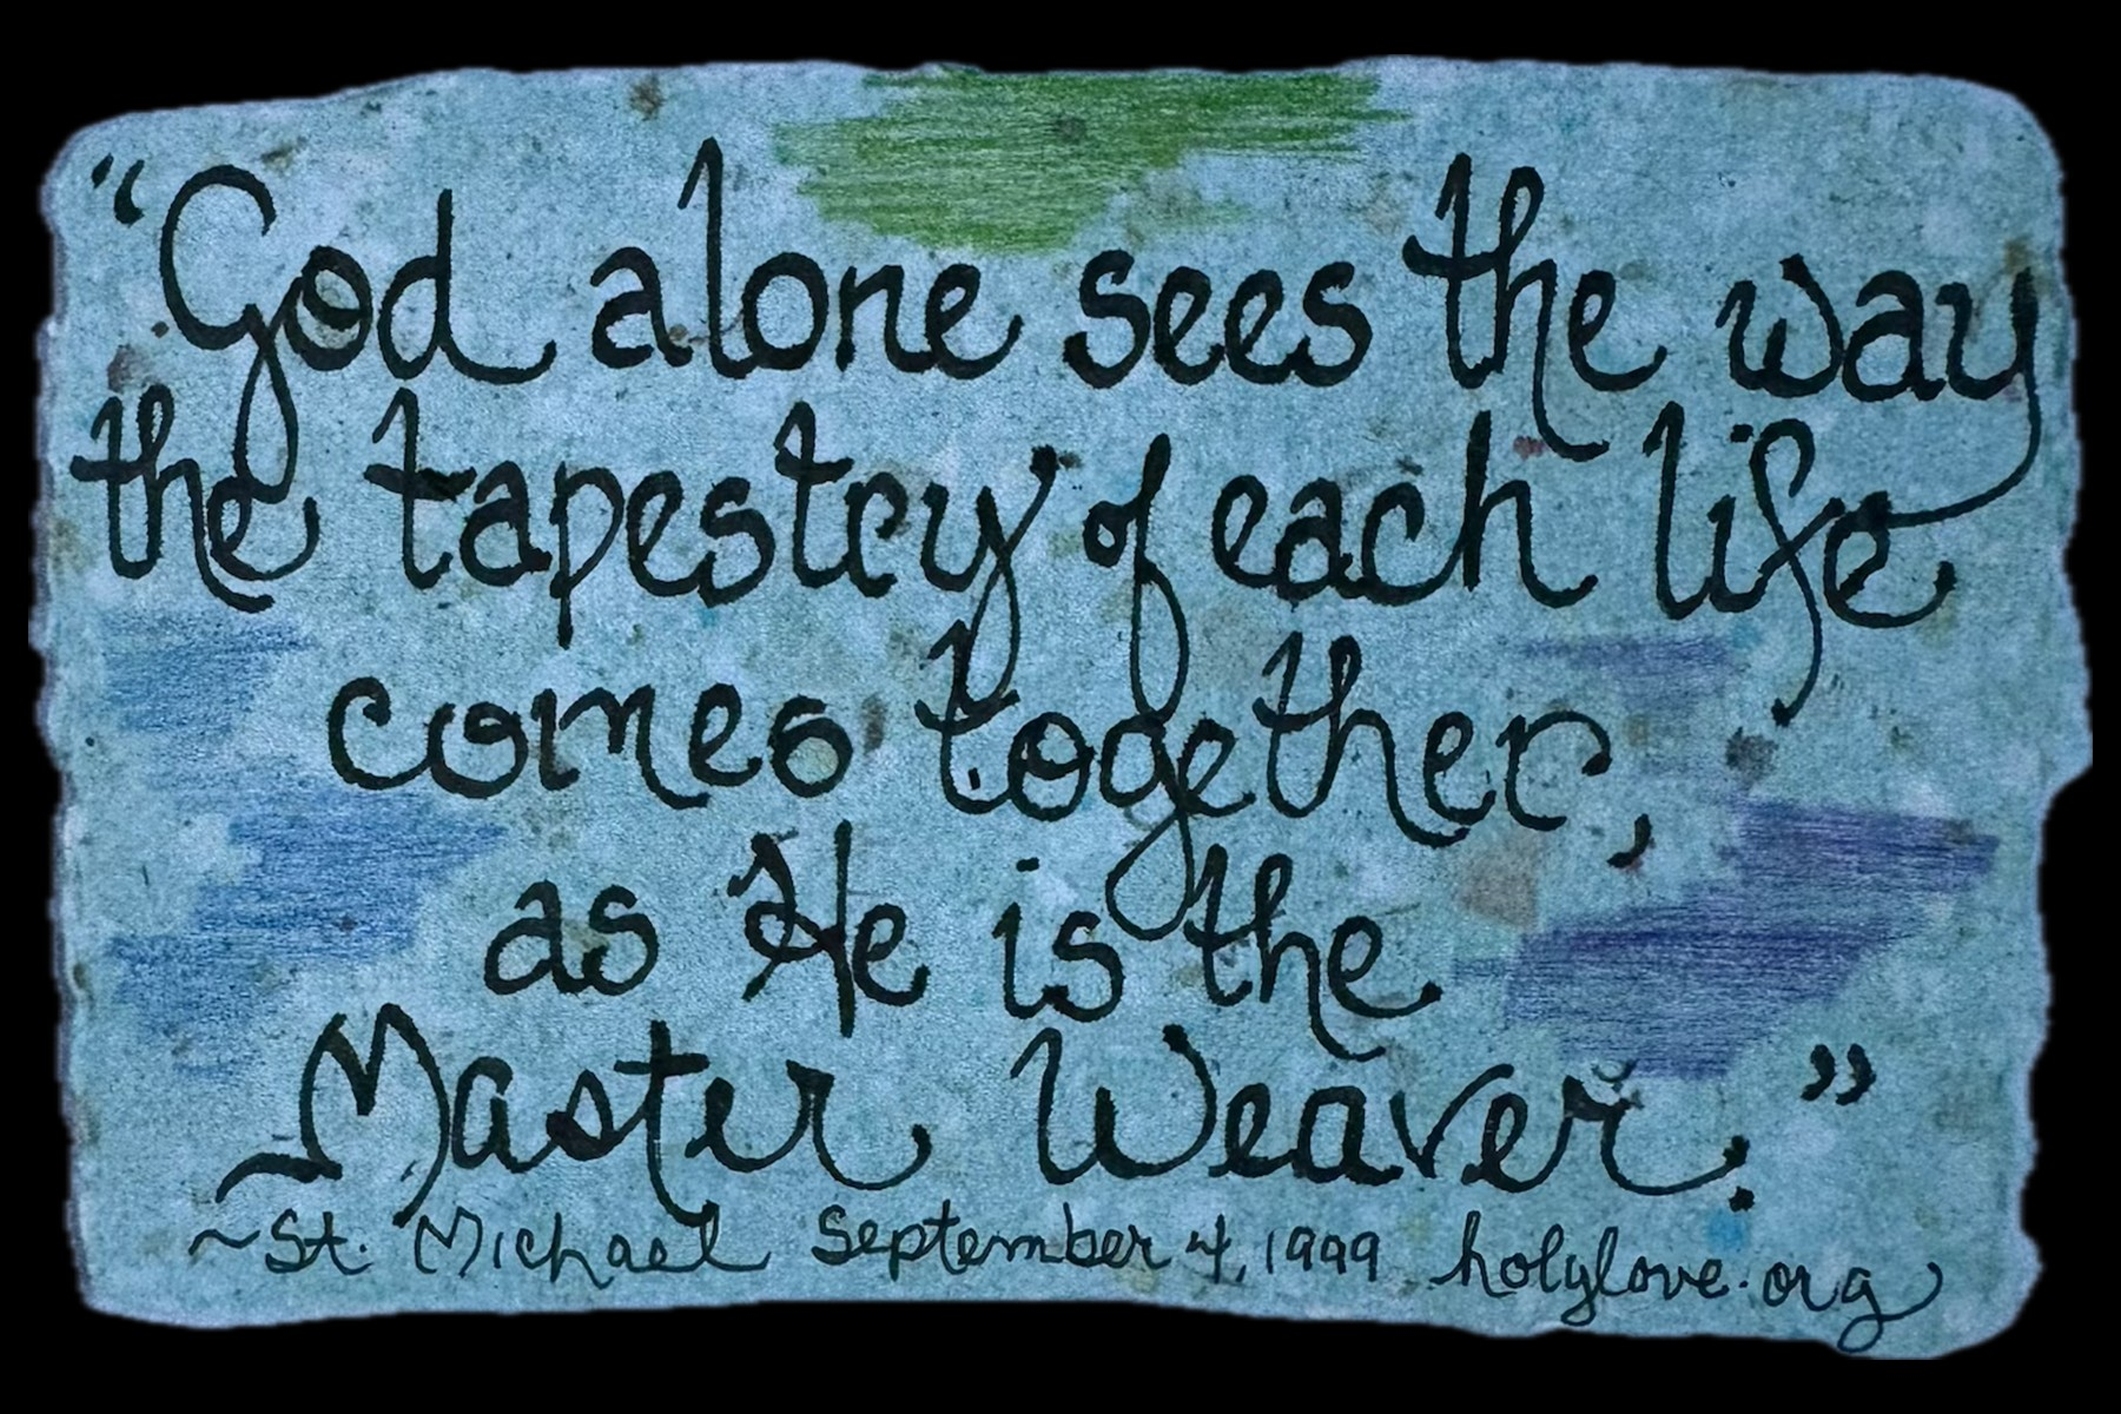 “God alone sees the way
the tapestry of each life
comes together,
as He is the
Master Weaver.”
~St. Michael September 4, 1999 holylove.org